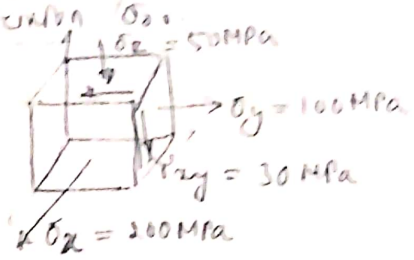 σz = 50MPa
σy = 100MPa
τxy = 30MPa
σx = 200MPa